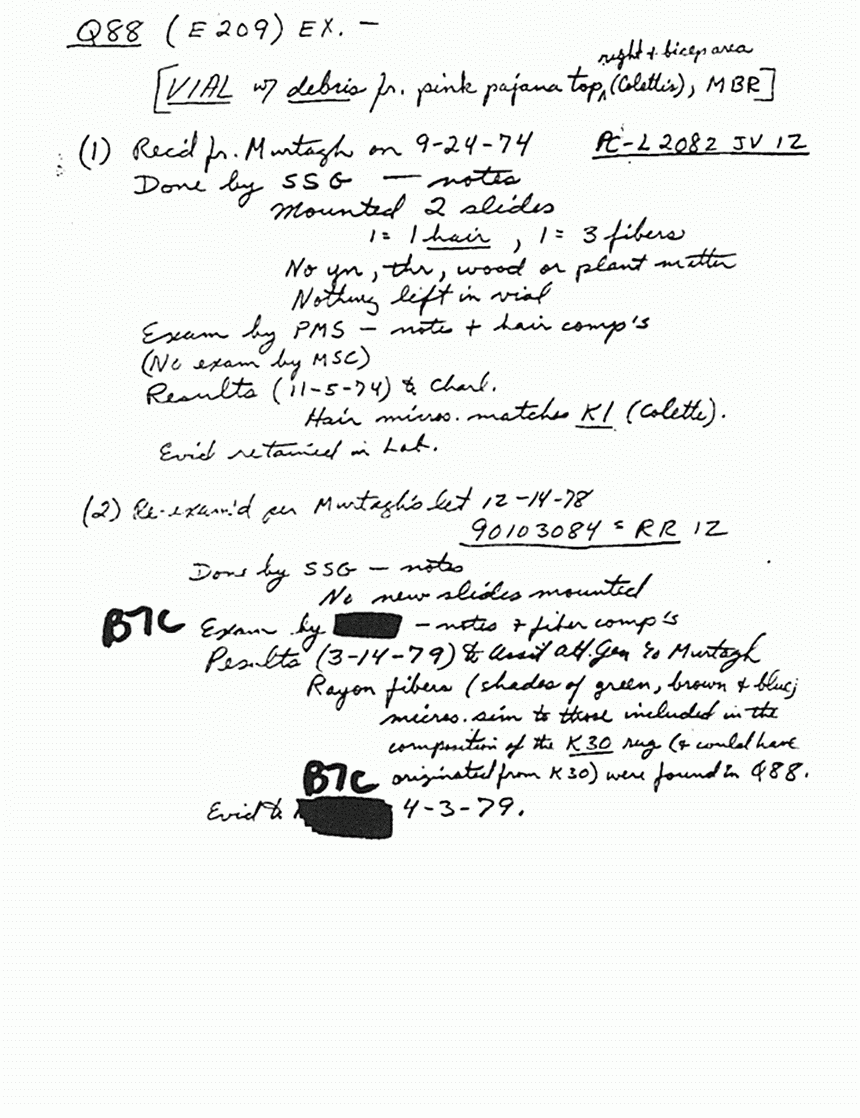 Q88 (E209) EX. -
right + bicep area
[VIAL w/ debris fr. pink pajama top, (Colette's), MBR]
(1) Rec'd fr. Murtagh on 9-24-74 PC-L2082 JV IZ
Done by SSG - notes
Mounted 2 slides
1 = 1 hair, 1 = 3 fibers
No yn, thr, wood or plant matter
Nothing left in vial
Exam by PMS - notes + hair comp's
(No exam by MSC)
Results (11-5-74) to Charl.
Hair micros. matches K1 (Colette).
Evid retained in Lab.
(2) Re-exam'd per Murtagh's let 12-14-78
90103084 = RR IZ
Done by SSG - notes
No new slides mounted
B7C Exam by - notes + fiber comp's
Results (3-14-79) to Assit Att. Gen % Murtagh
Rayon fibers (shades of green, brown + blue)
micros. sim to those included in the
composition of the K30 rug (+ could have
B7C originated from K30) were found in Q88.
Evid to 4-3-79.